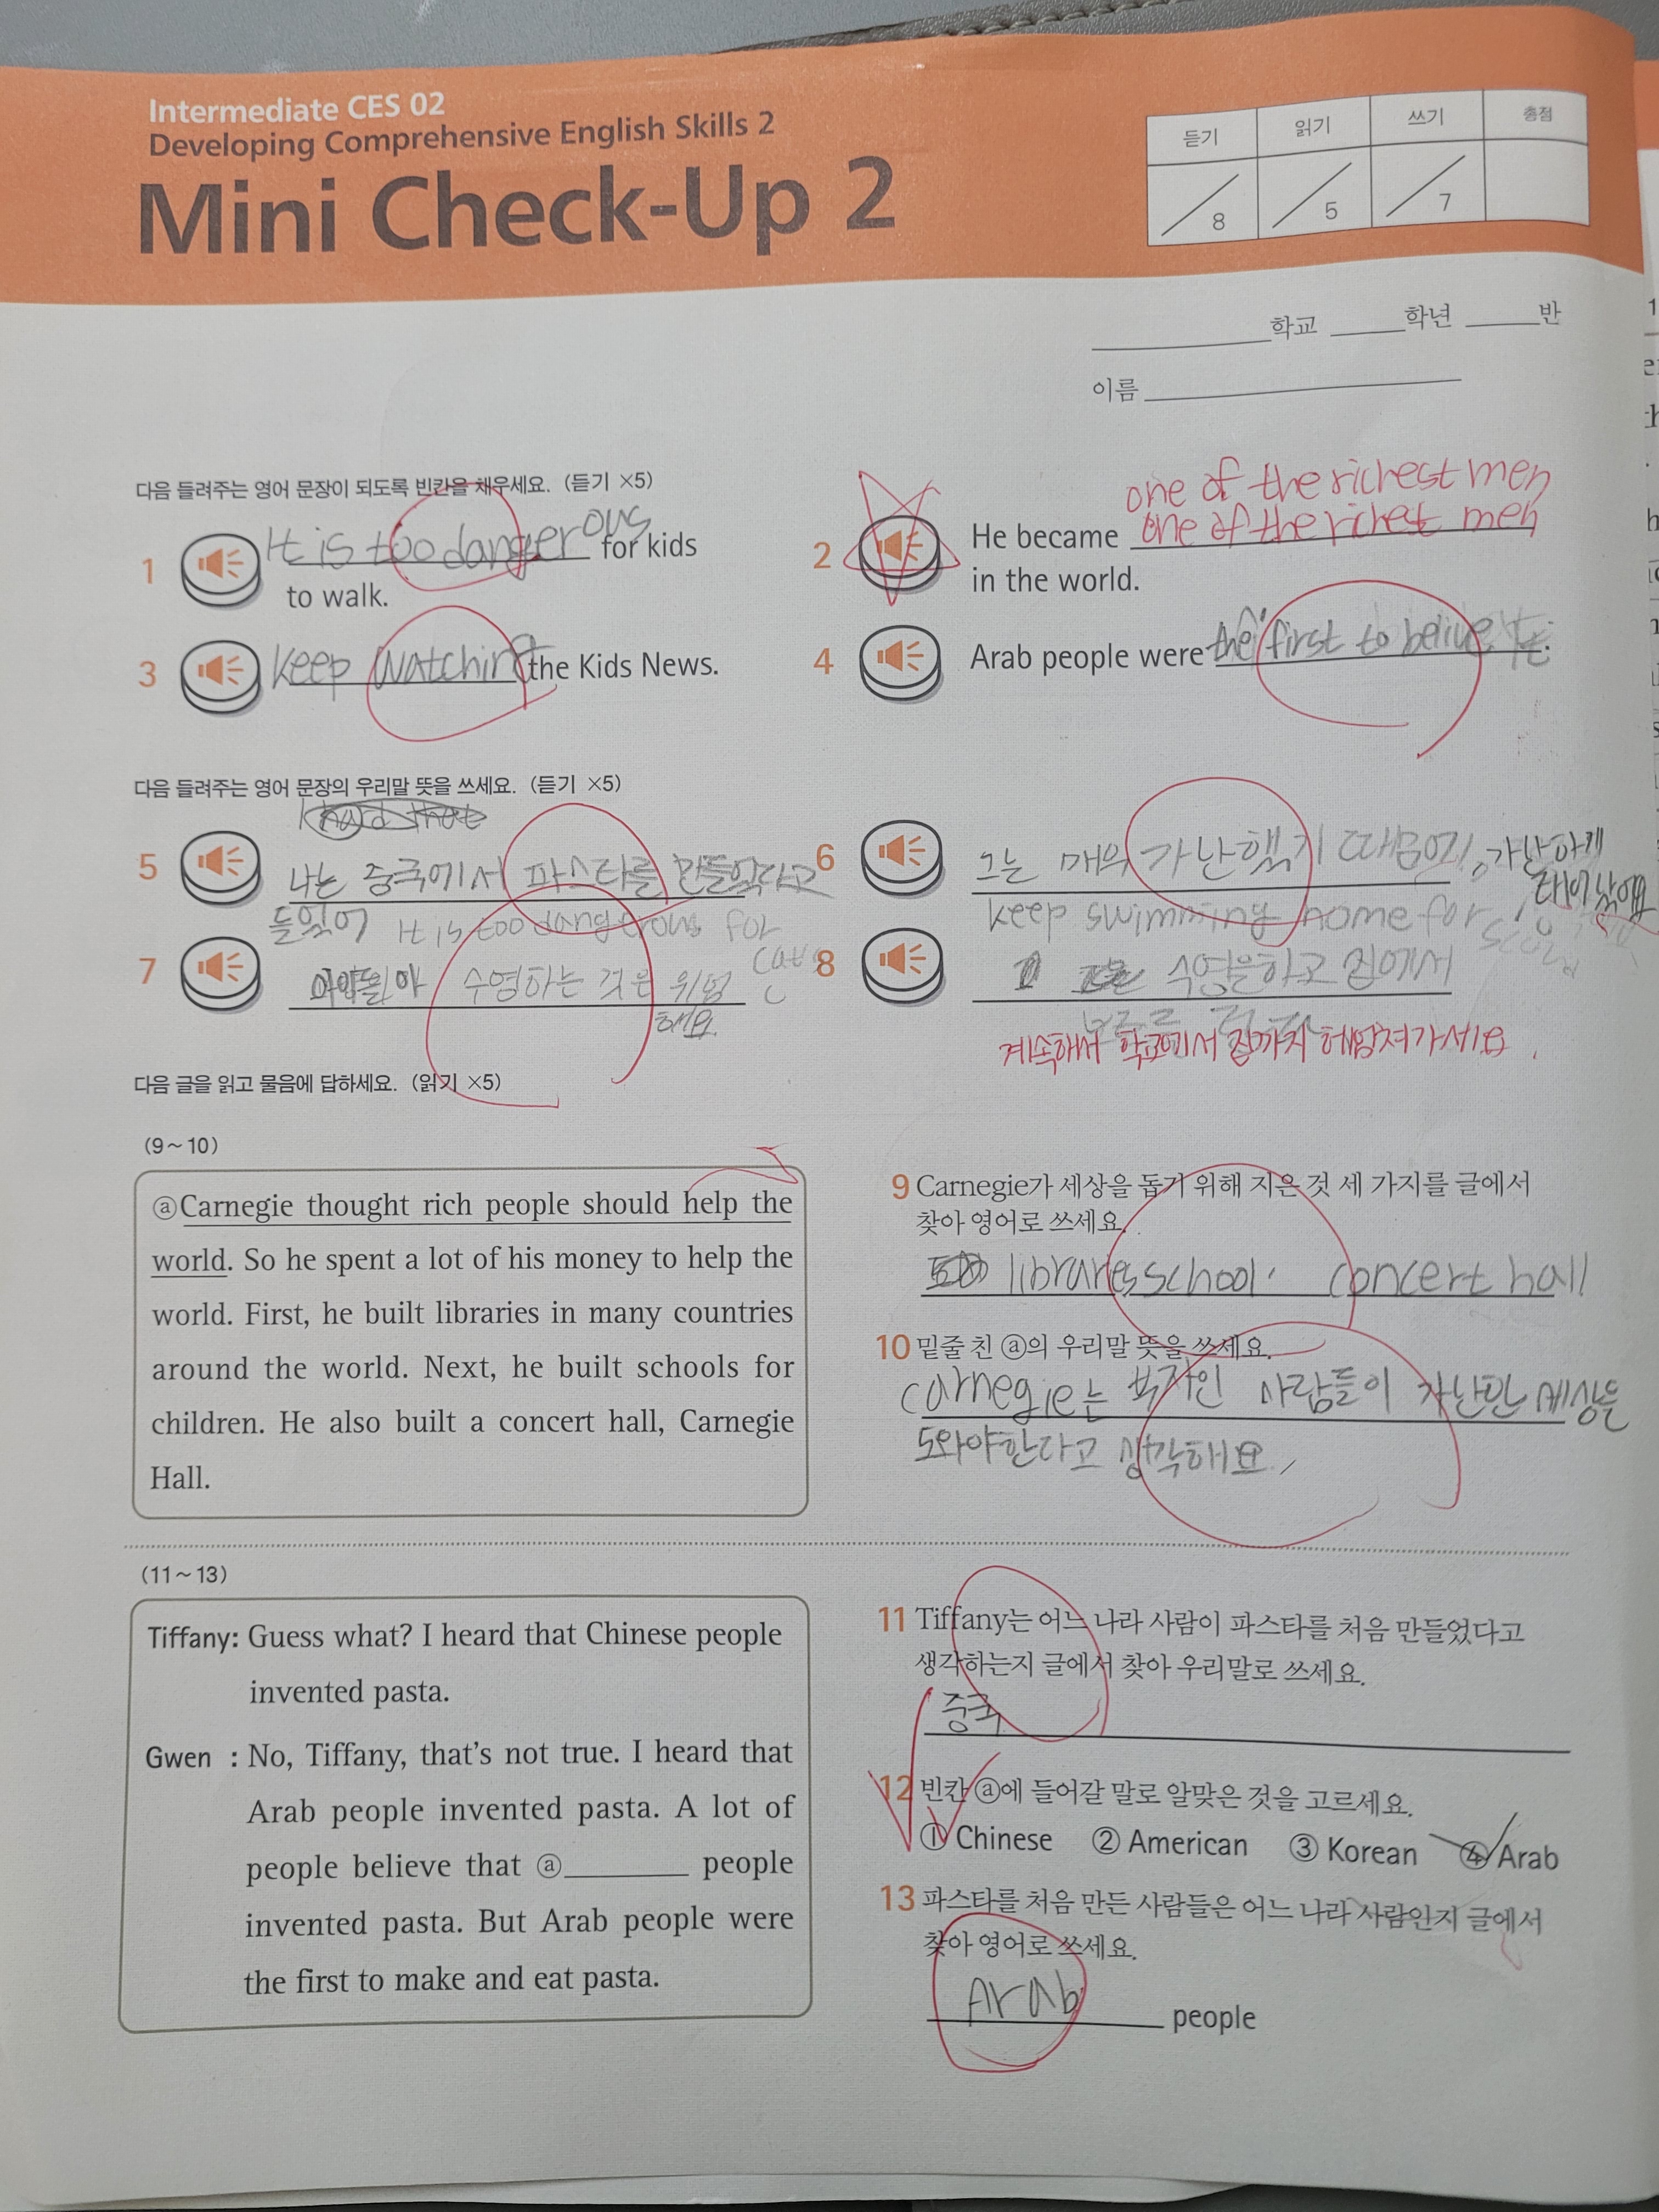 Intermediate CES 02
Developing Comprehensive English Skills 2
Mini Check-Up 2
듣기 읽기 쓰기 총점
8 5 7
학교 학년 반
이름
다음 들려주는 영어 문장이 되도록 빈칸을 채우세요. (듣기 ×5)
1 It is too dangerous for kids
to walk.
one of the richest men
2 He became one of the richest men
in the world.
3 keep watching the Kids News.
4 Arab people were the first to
다음 들려주는 영어 문장의 우리말 뜻을 쓰세요. (듣기 ×5)
5 나는 중국에서 파스타를 만들었다고
들었어
6 그는 매우 가난했기 때문에, 가난하게
태어났어요
It is too dangerous for
7 수영하는 것은 위험
해요.
keep swimming home for
8 수영을하고 집에서
계속해서 학교에서 집까지 헤엄져가세요.
다음 글을 읽고 물음에 답하세요. (읽기 ×5)
(9~10)
ⓐCarnegie thought rich people should help the
world. So he spent a lot of his money to help the
world. First, he built libraries in many countries
around the world. Next, he built schools for
children. He also built a concert hall, Carnegie
Hall.
9 Carnegie가 세상을 돕기 위해 지은 것 세 가지를 글에서
찾아 영어로 쓰세요.
libraries school, concert hall
10 밑줄 친 ⓐ의 우리말 뜻을 쓰세요.
Carnegie는 부자인 사람들이 가난한 세상을
도와야한다고 생각해요.
(11~13)
Tiffany: Guess what? I heard that Chinese people
invented pasta.
Gwen : No, Tiffany, that's not true. I heard that
Arab people invented pasta. A lot of
people believe that ⓐ________ people
invented pasta. But Arab people were
the first to make and eat pasta.
11 Tiffany는 어느 나라 사람이 파스타를 처음 만들었다고
생각하는지 글에서 찾아 우리말로 쓰세요.
중국
12 빈칸 ⓐ에 들어갈 말로 알맞은 것을 고르세요.
① Chinese ② American ③ Korean ④ Arab
13 파스타를 처음 만든 사람들은 어느 나라 사람인지 글에서
찾아 영어로 쓰세요.
Arab people